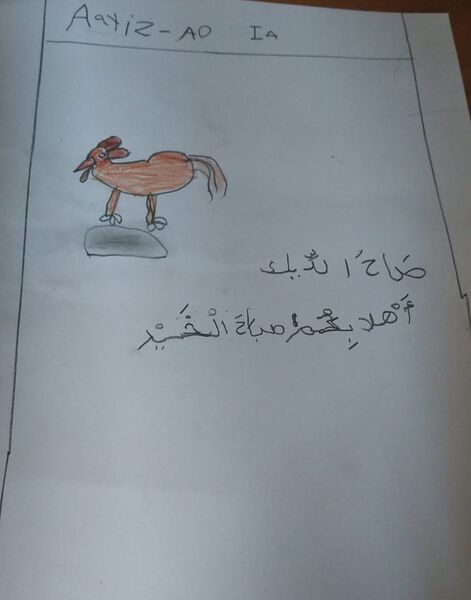 Aaxiz-AO Ia
صَاحَ ا لدِّيك
أَهْلا بِكُمْ صباحَ الْخَيْر